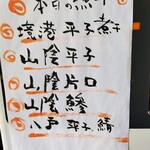 本日の煮干
境港 平子煮干
山陰 平子
山陰 片口
山陰 鯵
八戸 平子 鯖